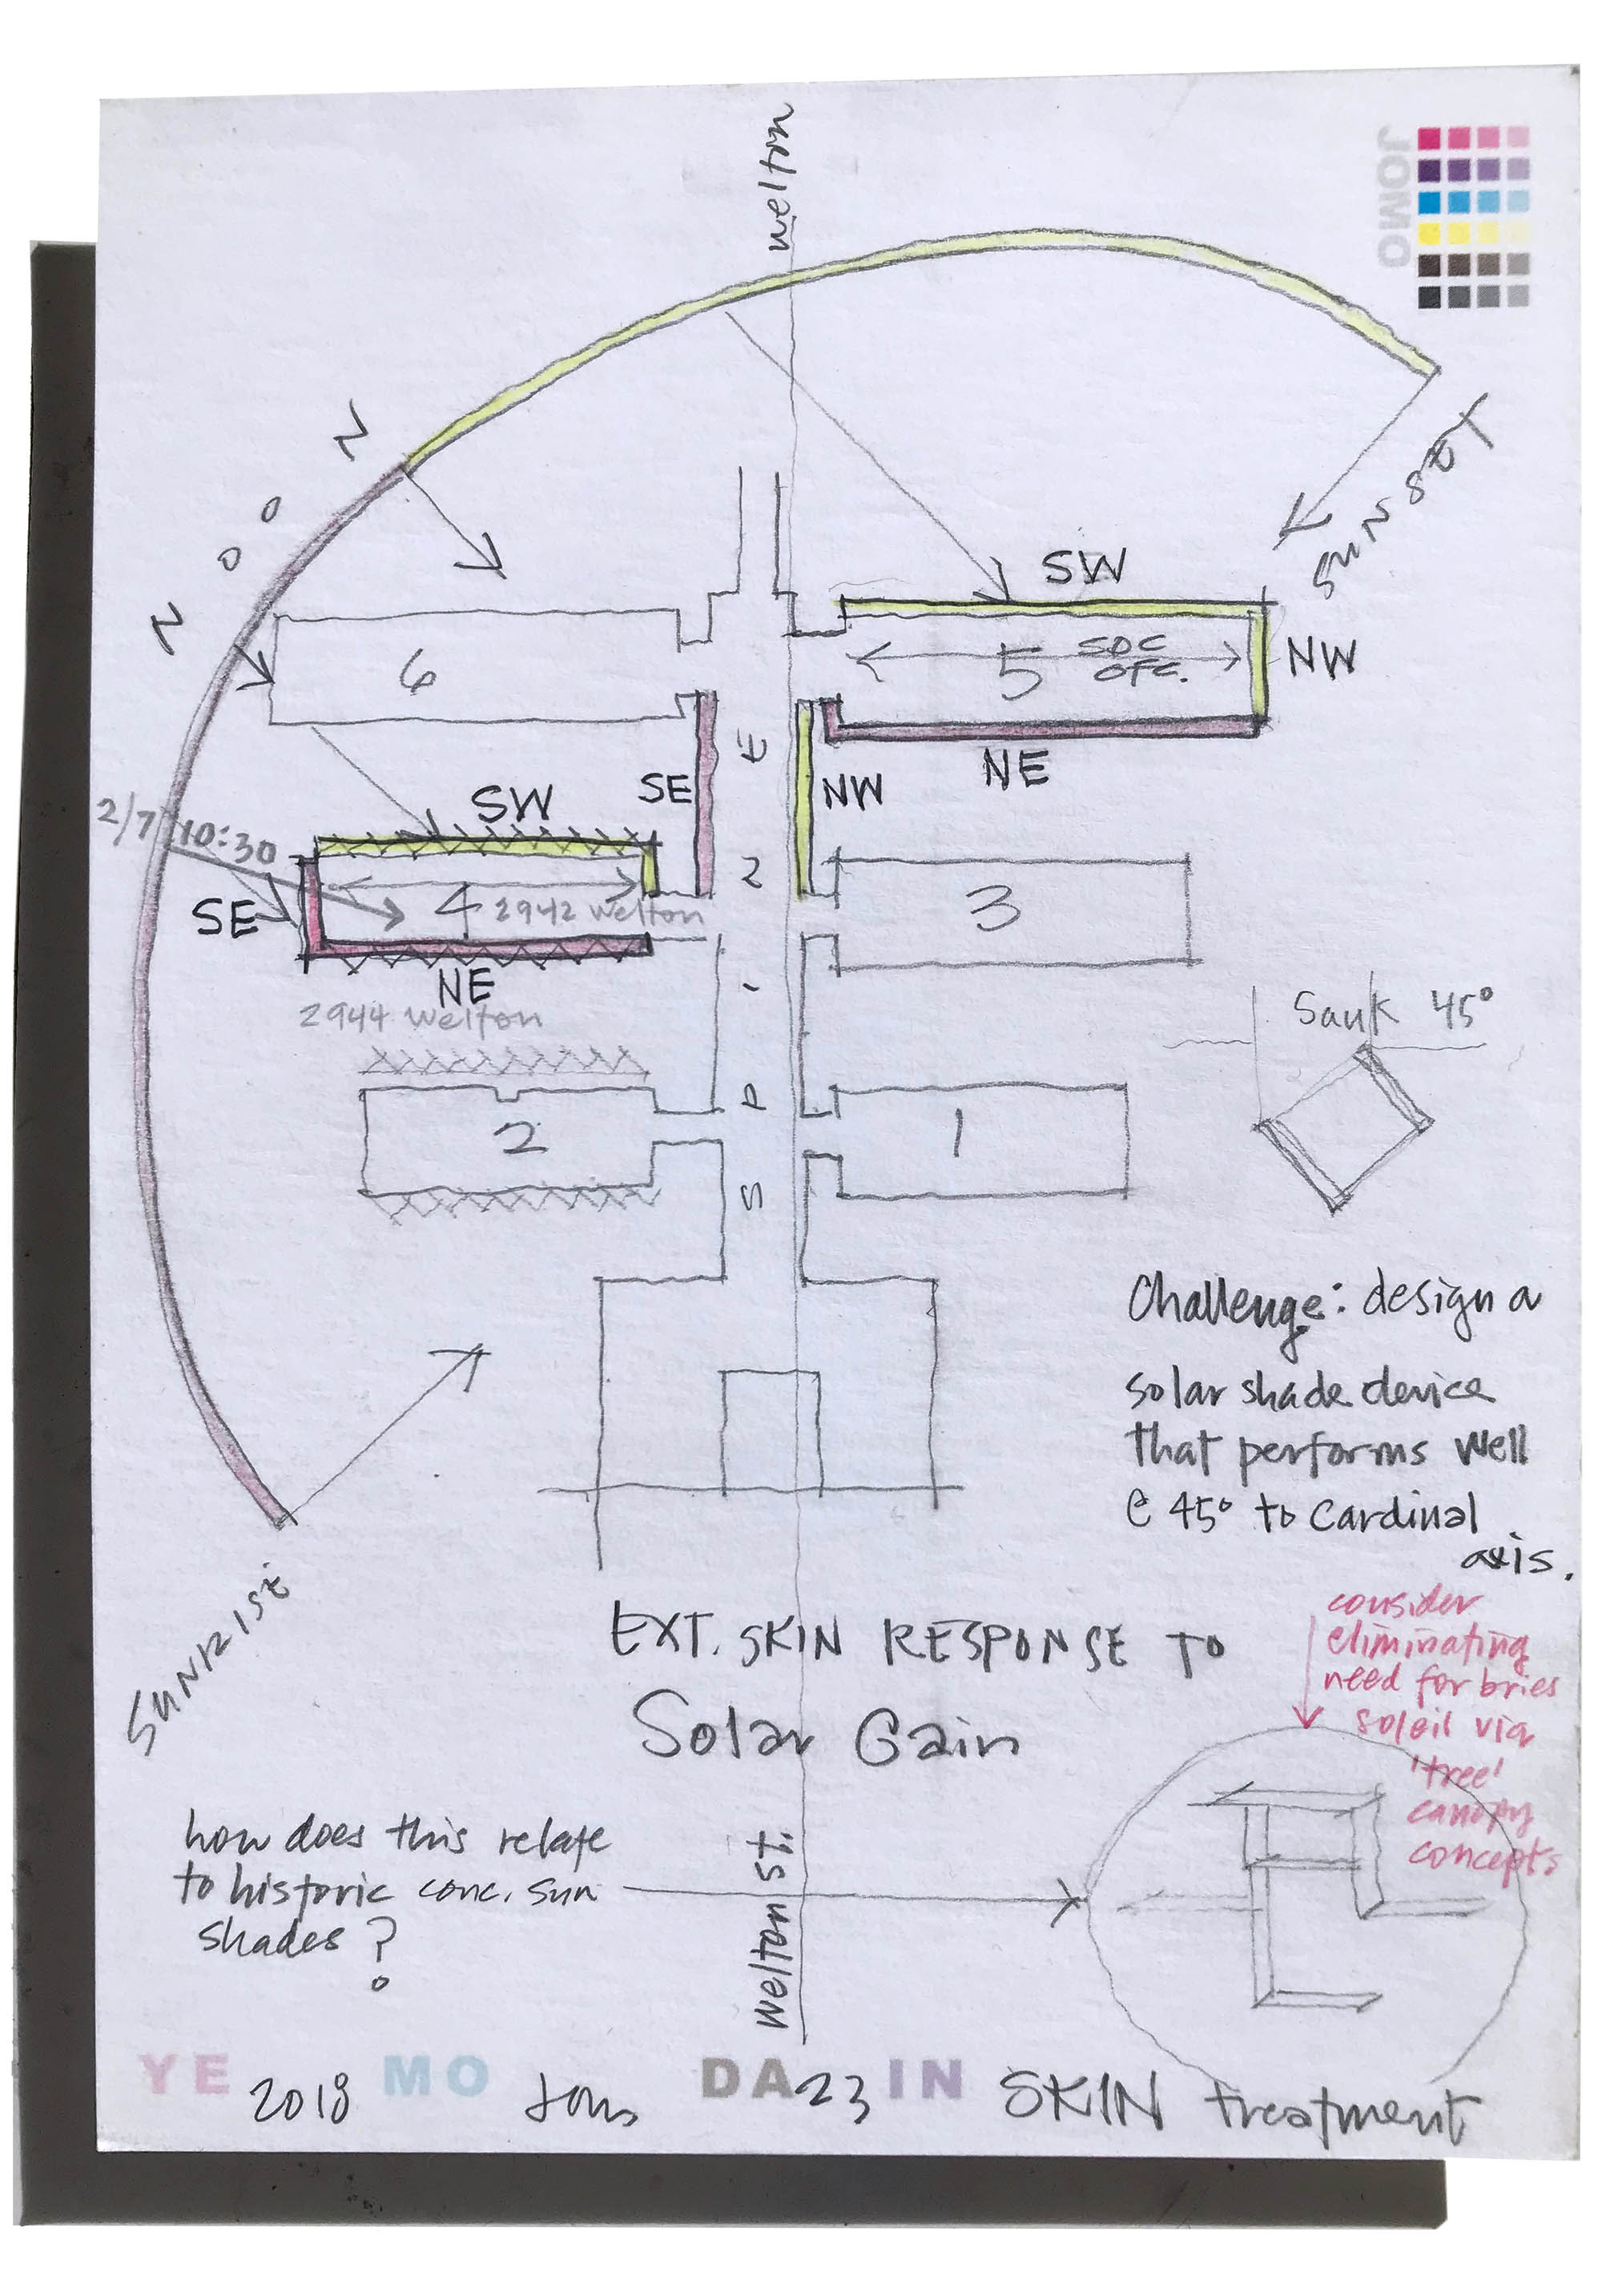 welton
JOMO
NOON
SUNSET
SW
6
5
SDC
OFC.
NW
NE
SW
SE
NW
2/7
10:30
SE
4
2942 Welton
3
NE
2944 Welton
Sauk 45°
SPINE
2
1
Challenge: design a
solar shade device
that performs well
@ 45° to cardinal
axis.
SUNRISE
EXT. SKIN RESPONSE TO
Solar Gain
consider
eliminating
need for bries
soleil via
'tree'
canopy
concepts
how does this relate
to historic conc. sun
shades?
Welton St.
YE 2018 MO DA 23 IN SKIN treatment